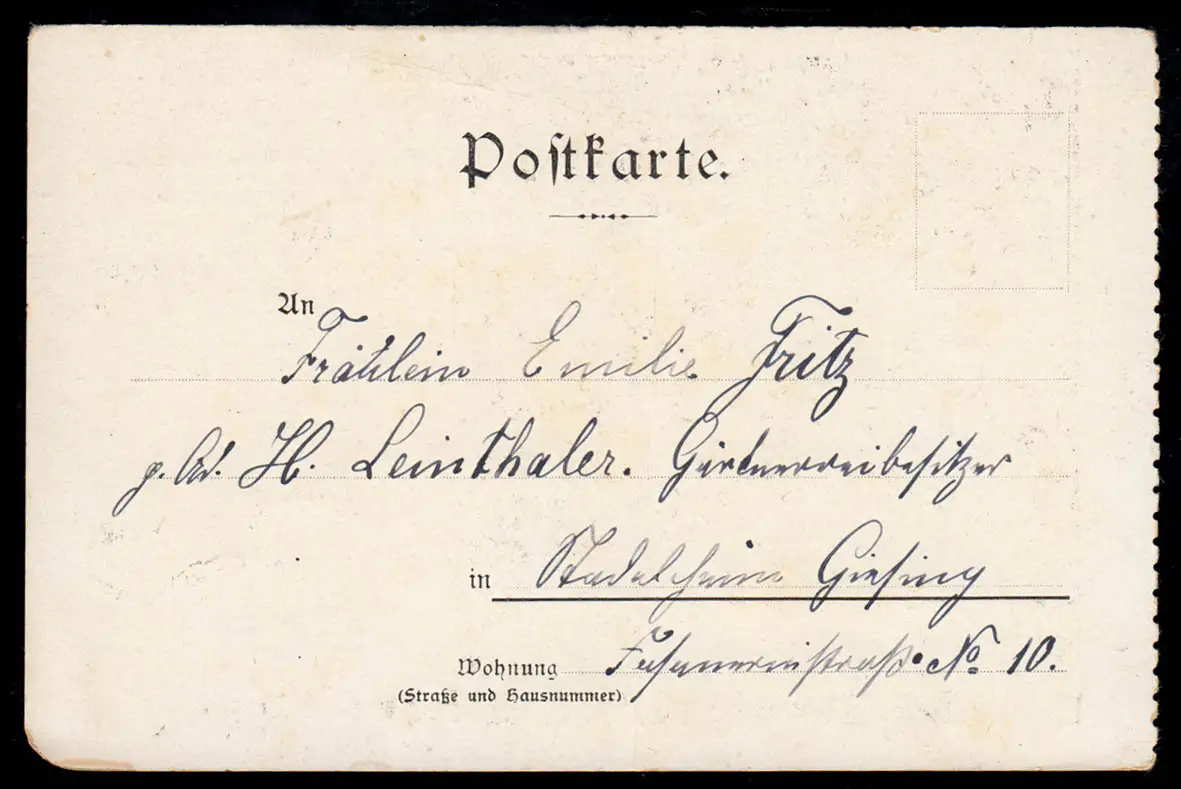 Postkarte.
An
Fräulein Emilie Fritz
p. Ad. H. Leinthaler. Gärtnereibesitzer
in Stadelheim Giesing
Wohnung Fasanereistraße No 10.
(Straße und Hausnummer)